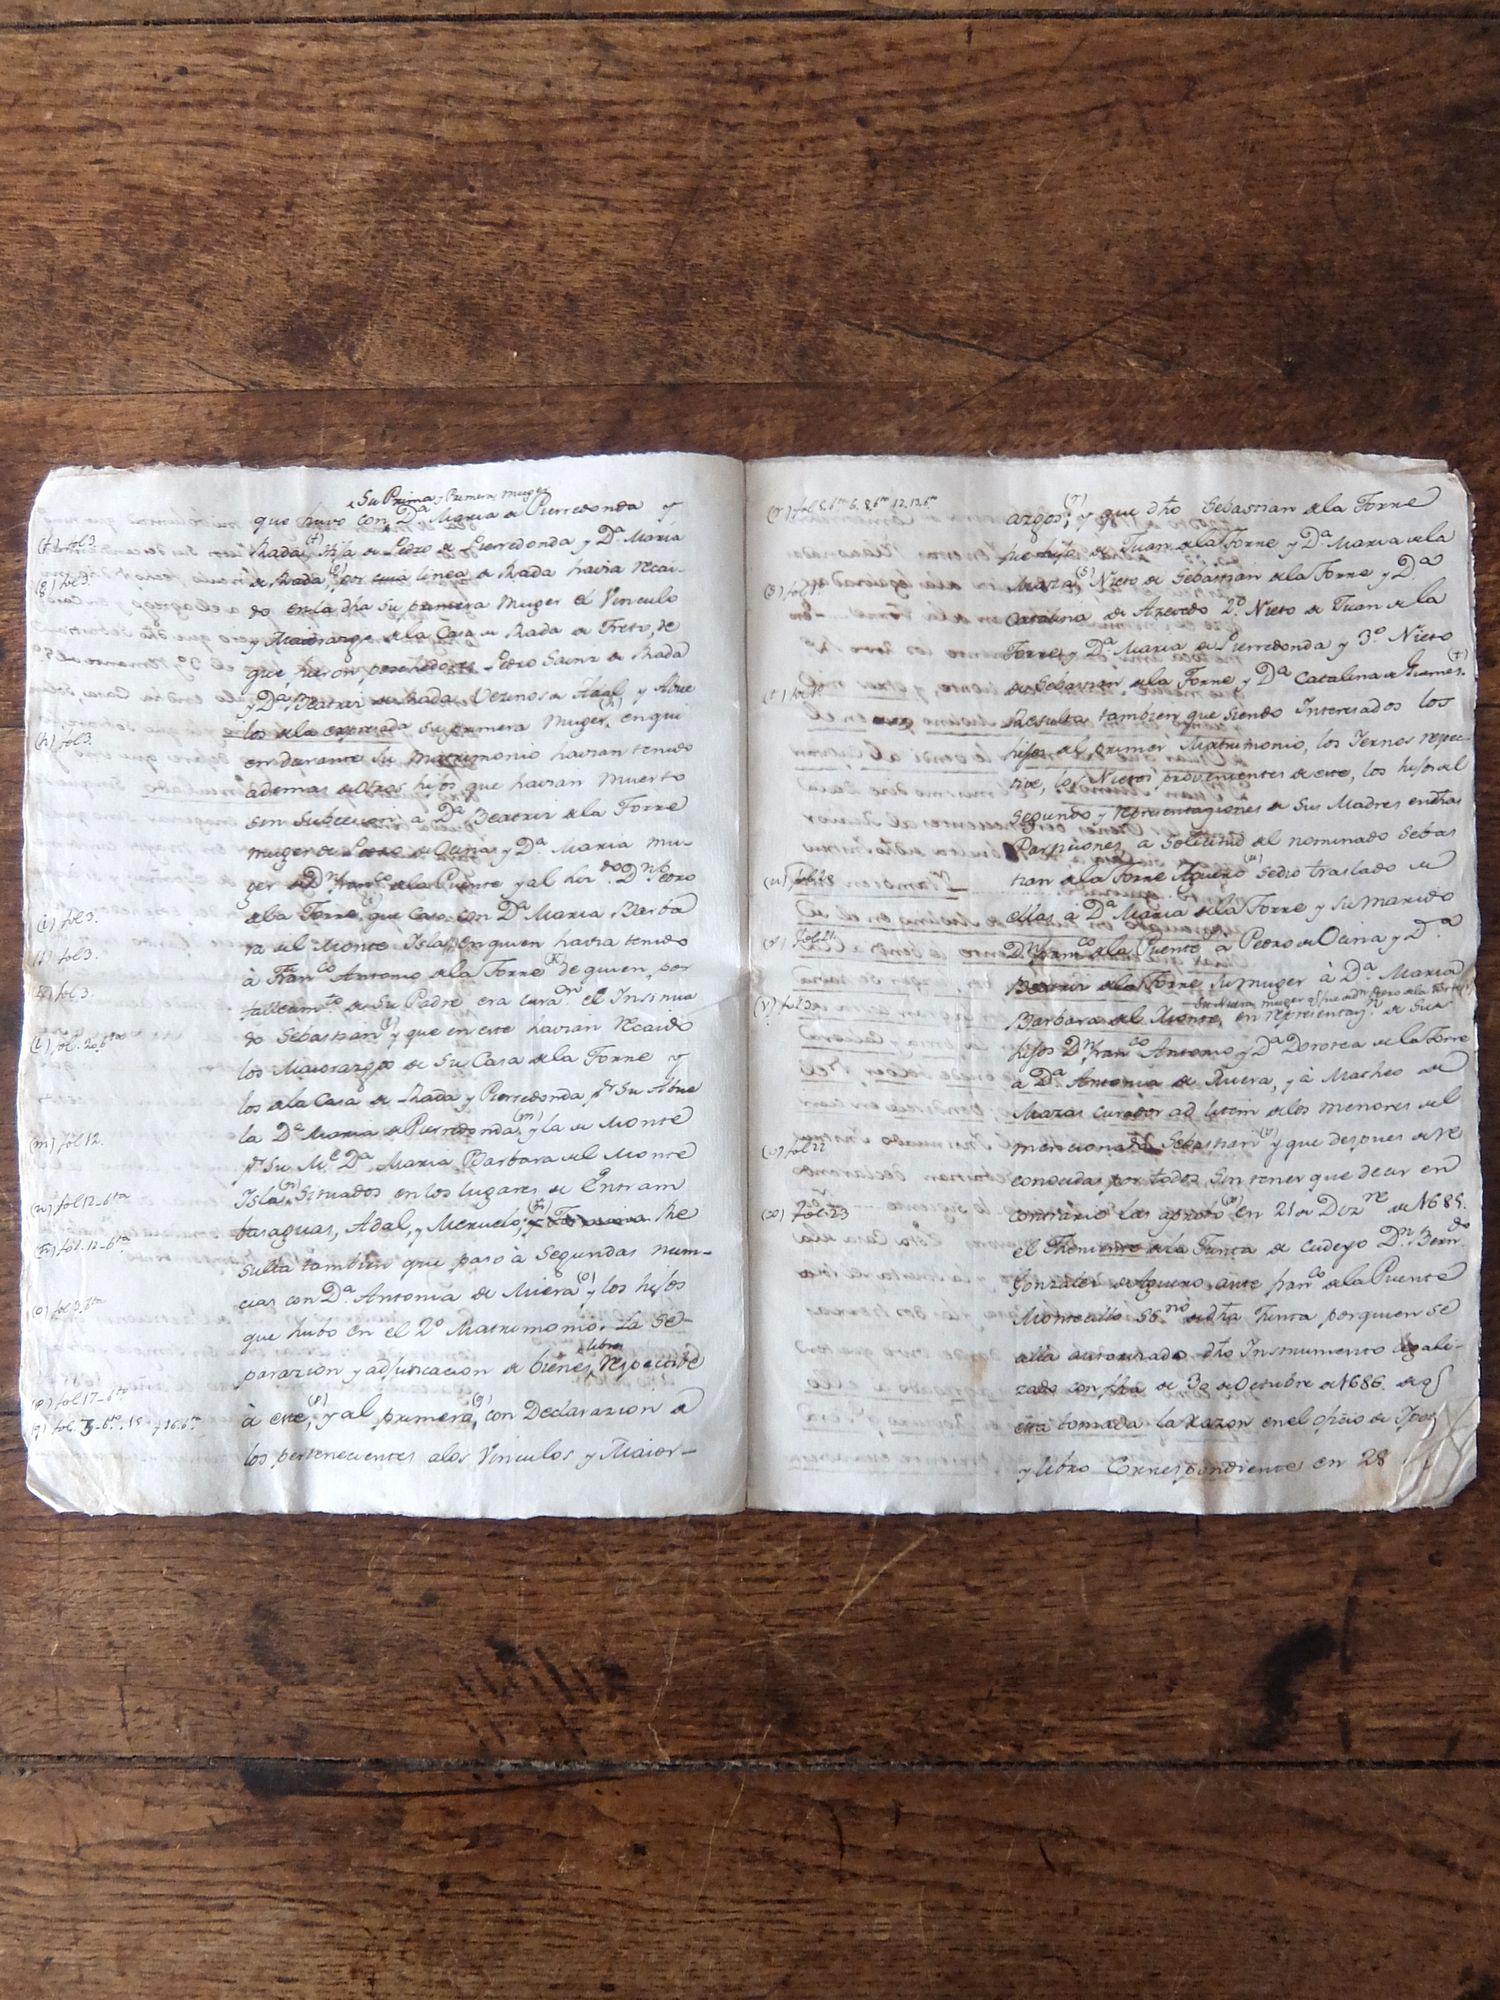 Su Prima y Primera Muger
que huvo con Dª Maria de Pierredonda y
(f) fol 3.
Rada, (f) Hija de Pedro de Pierredonda y Dª Maria
(g) fol 3.
de Rada (g) por cuia linea de Rada havia recai-
do en la dha su primera Muger el Vinculo
y Maiorazgo de la Casa de Rada de Treto, de
que fueron posehedores Pedro Sainz de Rada
y Dª Beatriz de Rada Vecinos de Adal, y Abue
(h) fol 3.
los de la expresada su primera Muger, (h) en qui
en durante su Matrimonio havian tenido
ademas de otros hijos que havian Muerto
sin Subcesion, a Dª Beatriz de la Torre
muger de Pedro de Ocina, y Dª Maria mu-
ger de Dn Franco de la Puente y al Lizdo Dn Pedro
(i) fol 3.
de la Torre, (i) que Caso con Dª Maria Barba
(j) fol 3.
ra del Monte Isla, (j) en quien havia tenido
(k) fol 3.
à Franco Antonio de la Torre (k) de quien, por
fallecimto de Su Padre era curador el Insinua
(l) fol. 20. bta
do Sebastian (l) y que en este havian recaido
los Maiorazgos de Su Casa de la Torre y
los de la Casa de Rada y Pierredonda pr Su Abue
(m) fol 12.
la Dª Maria de Pierredonda, (m) y la de Monte
pr Su Me Dª Maria Barbara del Monte
(n) fol 12. bta
Isla, (n) Situados en los lugares de Entram
(ñ) fol. 12. bta
basaguas, Adal, y Meruelo, (ñ) Re
sulta tambien que paso à Segundas Num-
(o) fol 3. bta
cias con Dª Antonia de Rivera (o) y los hijos
que hubo en el 2º Matrimonio. La Se-
libre
parazion y adjudicacion de bienes respective
(p) fol 17. bto
(q) fol. 3. bto, 15. y 16. bto
à este, (p) y al primero, (q) con Declarazion de
los pertenecientes a los Vinculos y Maior-
(r) fol 5. bto 6. 8. bto 12. 12. bto
azgos; (r) y que dho Sebastian de la Torre
fue hijo de Juan de la Torre y Dª Maria de la
(s) fol 1º
Maza (s) Nieto de Sebastian de la Torre y Dª
Catalina de Azevedo 2º Nieto de Juan de la
Torre y Dª Maria de Pierredonda y 3º Nieto
(t) fol 1º
de Sebastian de la Torre y Dª Catalina de Guemes. (t)
Resulta tambien que siendo Interesados los
hijos del primer Matrimonio, los Iernos respec-
tive, los Nietos provenientes de este, los hijos del
Segundo y representaziones de Sus Madres en dhas
Partiziones, a Solicitud del nominado Sebas
(u) fol 18
tian de la Torre Aguero (u) Se dio traslado de
ellas à Dª Maria de la Torre y su marido
(v) fol 21
Dn Franco de la Puente à Pedro de Ocina y Dª
Beatriz de la Torre su muger à Dª Maria
Su Nuera, muger q fue de Dn Pedro de la Torre
(v) fol 3
Barbara del Monte, en representazn de Sus
hijos Dn Franco Antonio y Dª Dorotea de la Torre
a Dª Antonia de Rivera, y à Matheo de
Mazas curador ad litem de los menores del
(v) fol 22
mencionado Sebastian (v) y que despues de re
conocidas por todos Sin tener que decir en
(x) fol. 23
contrario las aprobó (x) en 21 de Dizre de 1685.
el Theniente de la Junta de Cudeyo Dn Berndo
Gonzalez de Aguero ante Franco de la Puente
Montecillo SSno de dha Junta por quien se
alla autorizado dho Instrumento legali-
zado con fha de 30 de Octubre de 1686. de q
està tomada la razon en el oficio de Ypos
y libro Correspondiente en 28